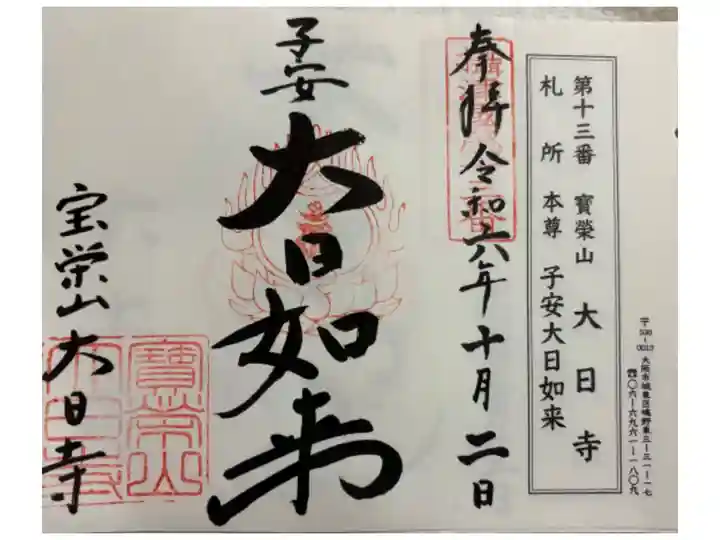 〒536-0013 大阪市城東区鴫野東三-三一-一七
☎〇六-六九六一-一八〇九
第十三番 寶榮山 大日寺
札所 本尊 子安大日如来
奉拝 令和六年十月二日
子安
大日如来
宝栄山大日寺
寶榮山
大日寺